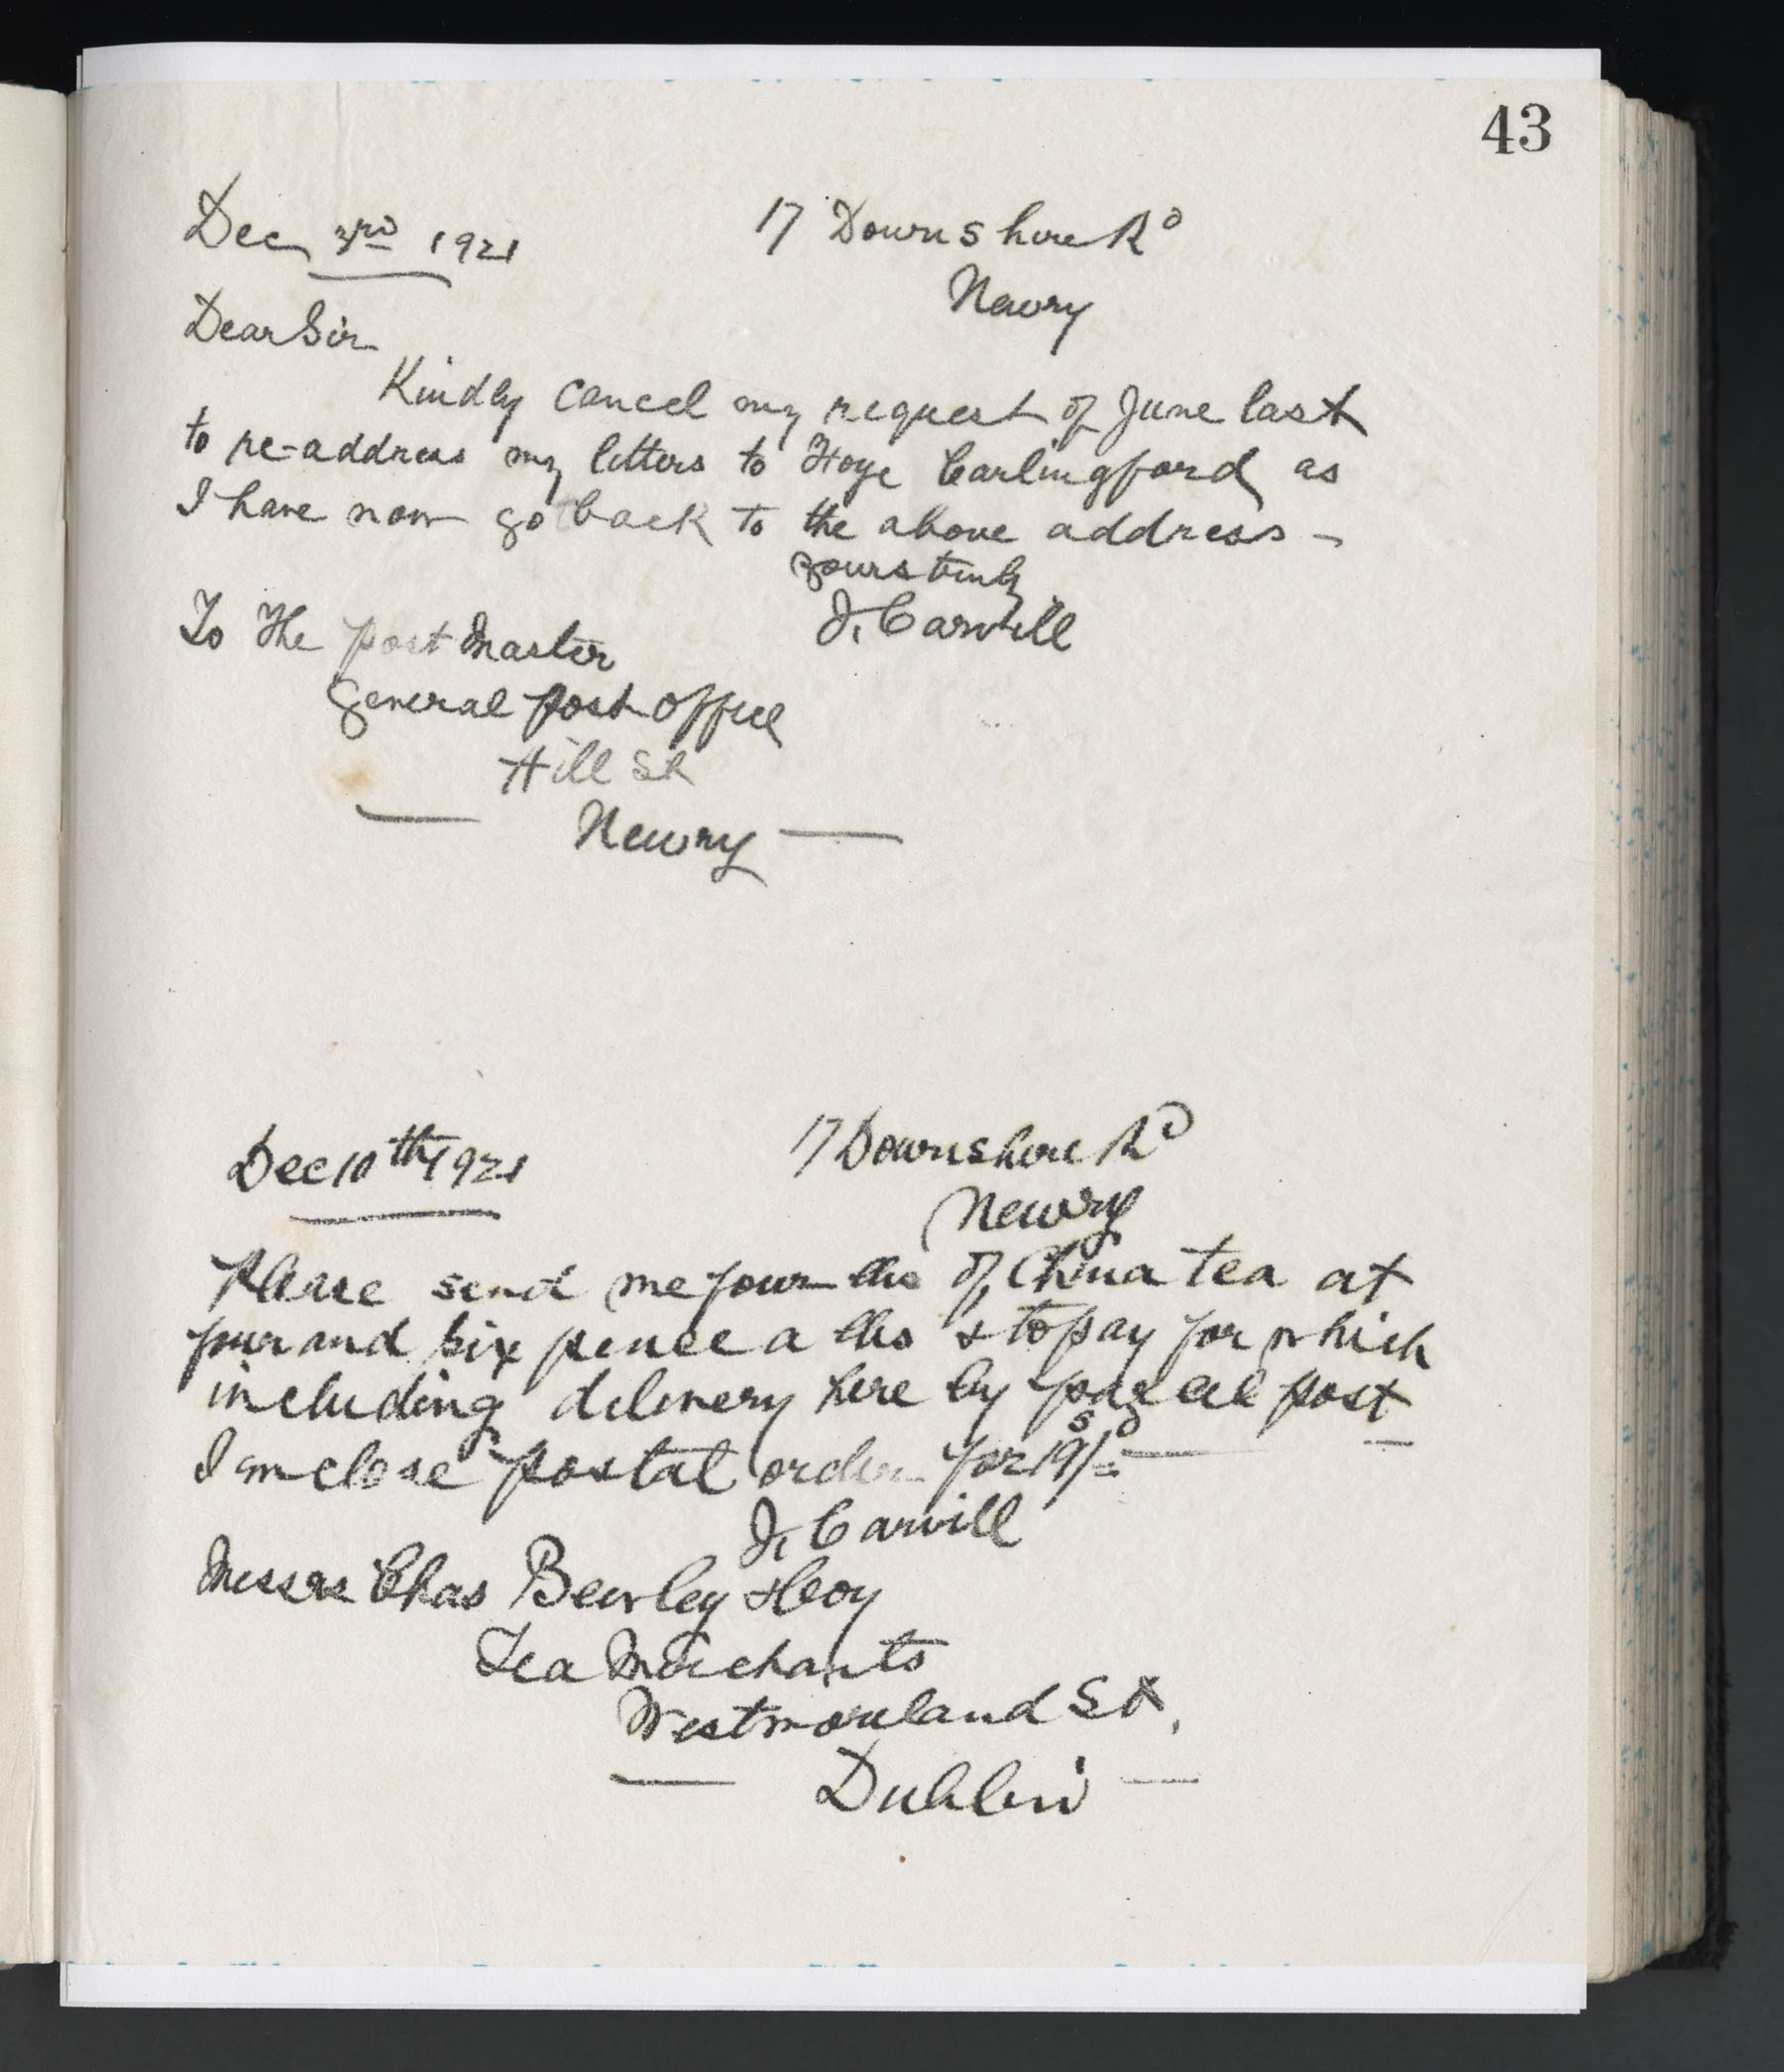 43
Dec 3rd 1921
17 Downshire Rd
Newry
Dear Sir
Kindly cancel my request of June last
to re-address my letters to Carlingford as
I have now got back to the above address -
yours truly
J. Carvill
To The post Master
General post office
Hill St
Newry
Dec 10th 1921
17 Downshire Rd
Newry
Please send me four lbs of China tea at
four and six pence a lbs & to pay for which
including delivery here by parcel post
I enclose postal order for 19s/=d
J. Carvill
Messrs Chas Bewley & Coy
Tea Merchants
Westmoreland St,
Dublin